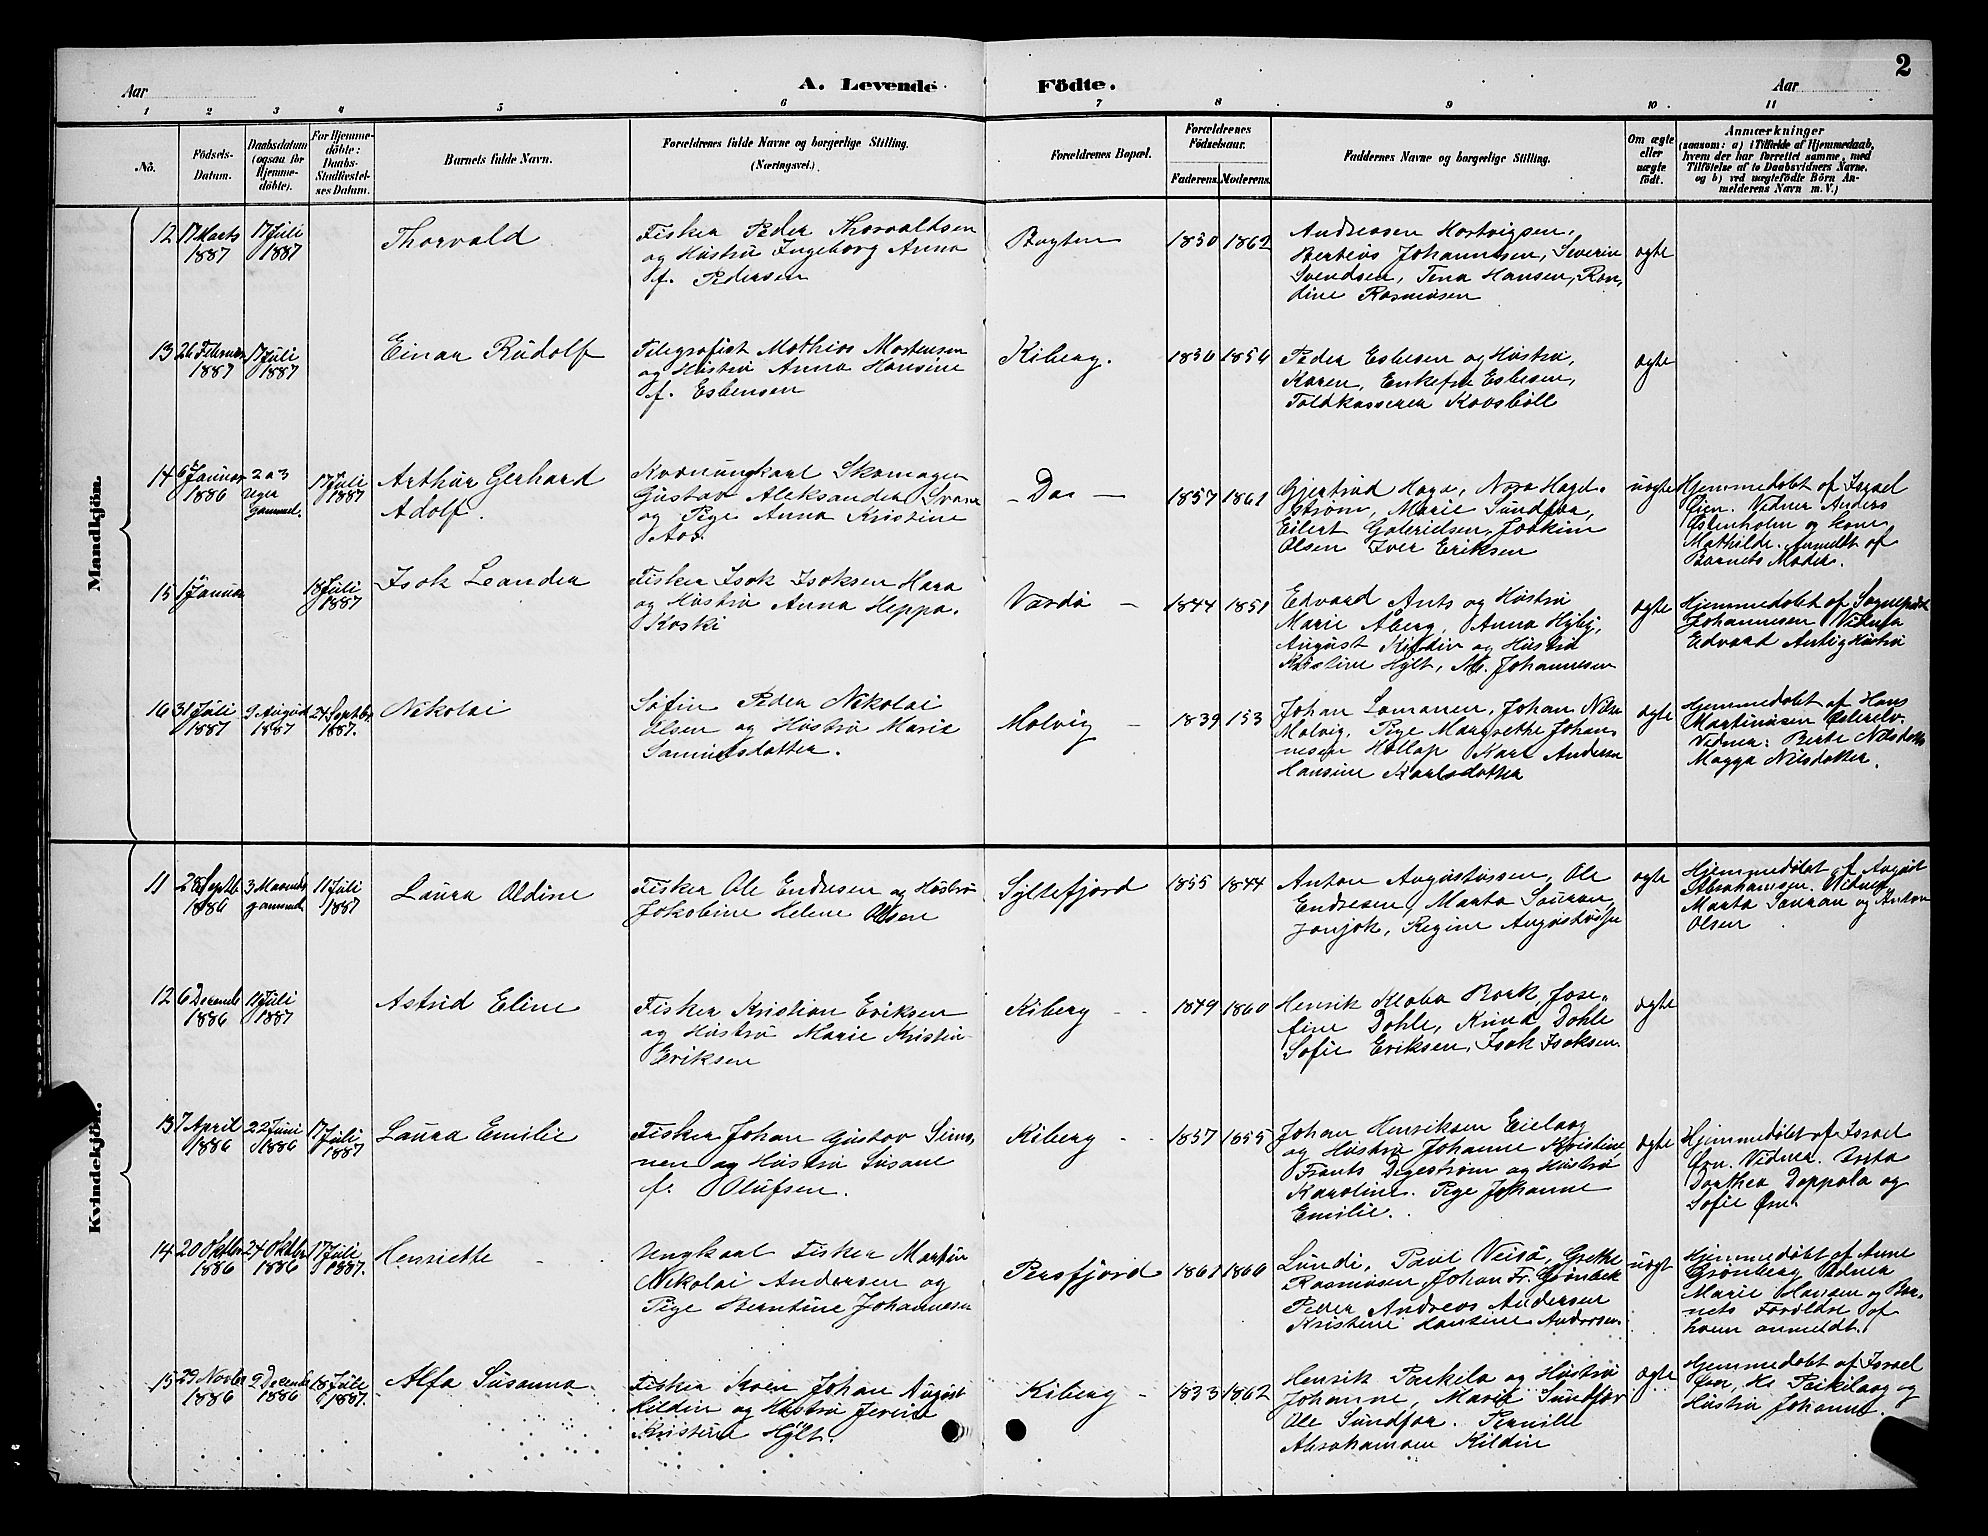 2
Aar
A. Levende
Födte.
Aar
1 2 3 4 5 6 7 8 9 10 11
No.
Födsels-
Datum.
Daabsdatum
(ogsaa for
Hjemme-
döbte).
For Hjemme-
döbte:
Daabs-
Stadfæstel-
ses Datum.
Barnets fulde Navn.
Forældrenes fulde Navne og borgerlige Stilling.
(Næringsvei.)
Forældrenes Bopæl.
Forældrenes
Födselsaar.
Faderens. Moderens.
Faddernes Navne og borgerlige Stilling.
Om ægte
eller
uægte
födt.
Anmærkninger
(saasom: a) i Tilfælde af Hjemmedaab,
hvem der har forrettet samme, med
Tilföielse af to Daabsvidners Navne,
og b) ved uægtefödte Börn An-
melderens Navn m. V.)
Mandkjön.
12
17 Marts
1887
17 Juli
1887
Thorvald
Fisker Peder Thorvaldsen
og Hustru Ingeborg Anna
f. Pedersen
Bugten
1850
1862
Andreasen Hartvigsen,
Berteus Johannesen, Severin
Svendsen, Tena Hansen, Ran,
dine Rasmusen
ægte
13
26 Februar
1887
17 Juli
1887
Einar Rudolf
Telegrafist Mathias Mortensen
og Hustru Anna Hansine
f. Esbensen
Kiberg.
1850
1854
Peder Esbesen og Hustru,
Karen, Enkefru Esbesen,
Toldkasserer Kovsböll
ægte
14
6 Januar
1886
2 a 3
Uger
gammel.
17 Juli
1887
Arthur Gerhard
Adolf.
Kvænungkarl Skomager
Gustav Aleksander Svans
og Pige Anna Kristine
Aas.
- Do -
1857
1861
Gjertrud Haga, Nora Hagd.
ström, Marie Sundfær,
Eilert Gabrielsen, Joakim
Olsen Iver Eriksen
uægte
Hjemmedöbt af Israel
Öien. Vidner Anders
Östenholm og kone
Mathilde. Anmeldt af
Barnets Moder.
15
1 Januar
18 Juli
1887
Isak Leander
Fisker Isak Isaksen Hara
og Hustru Anna Heppa.
Koski
Vardö -
1844
1851
Edvard Ants og Hustru
Marie Åberg, Anna Hyby,
August Kildin og Hustru
Kristine Hylt, M. Johannesen
ægte
Hjemmedöbt af Sognepræst
Johannesen Vidner
Edvard Antsig Hustru
16
31 Juli
1887
9 August
1887
24 Septbr
1887.
Nikolai
Söfin Peder Nikolai
Olsen og Hustru Marie
Samuelsdatter.
Molvig -
1839
153
Johan Lamanen, Johan Nilsen
Molvig, Pige Margrethe Johan,
nesen Hollap Karl Andersen
Hansine Karlsdatter
ægte
Hjemmedöbt af Hans
Martinusen Österelv.
Vidner: Berte Nilsdatter
Magga Nilsdatter.
Kvindekjön.
11
28 Septb.
1886
3 Maaneder
gammel
11 Juli
1887
Laura Oldine
Fisker Ole Endresen og Hustru
Jakobine Helene Olsen
Syltefjord
1855
1844
Anton Augustussen, Ole
Endresen, Marta Souran,
Jonjok, Regine Augustussen
ægte
Hjemmedöbt af August
Abrahamsen. Vidner
Marta Souran og Anton
Olsen
12
6 Decemb
1886
11 Juli
1887
Astrid Eline
Fisker Kristian Eriksen
og Hustru Marie Kristin
Eriksen
Kiberg -
1849
1860
Henrik Klaba Bork, Jose,
fine Dohle, Knud Dohle
Sofie Eriksen, Isak Isaksen.
ægte
13
7 April
1886
22 Juni
1886
17 Juli
1887
Laura Emilie
Fisker Johan Gustav Simo,
nen og Hustru Susane
f. Olufsen.
Kiberg -
1857
1855
Johan Henriksen Eielaag
og Hustru Johanne Kristine,
Frants Degerström og Hustru
Karoline. Pige Johanne
Emilie.
ægte
Hjemmedöbt af Israel
Örn. Vidner.
Dorthea Doppala og
Sofie Örn.
14
20 Oktbr
1886
24 Oktbr
1886
17 Juli
1887.
Henriette
Ungkarl Fisker Martin
Nikolai Andersen og
Pige Berntine Johannesen
Persfjord
1861
1860
Lundi, Paul Veisö, Grethe
Rasmusen Johan Fr. Grönbek
Peder Andreas Andersen
Kristine Hansine Andersen
uægt
Hjemmedöbt af Anne
Grönberg Vidner
Marie Hansen og Bar,
nets Forældre af
hvem anmeldt.
15
29 Novbr
1886
9 Decemb
1886
18 Juli
1887.
Alfa Susanna.
Fisker Kvæn Johan August
Kildin og Hustru
Kristine Hylt.
Kiberg -
1833
1862
Henrik Peikela og Hustru
Johanne, Marie Sundfør
Ole Sundfær. Pernille
Abrahamsen Kildin
ægte
Hjemmedöbt af Israel
Örn, Hr Peikelaag og
Hustru Johanne.